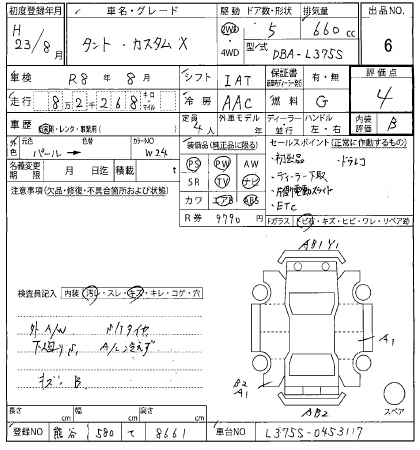 初度登録年月 車名・グレード 駆動 ドア数・形状 排気量 出品No.
H 23/8月 タント・カスタムX 2WD 4WD 5 660 cc 6
型/式 DBA-L375S
車検 R8年 8月 シフト IAT 保証書 有・無 評価点
走行 8万2千268 キロ・マイル 冷房 AAC 燃料 G 4
車歴 自家用・レンタ・事業用( ) 定員 4人 外車モデル ディーラー・並行 ハンドル 左・右 内装評価 B
外色 元色 パール→ 色替 カラーNO W24 装備品(純正品に限る) セールスポイント(正常に作動するもの)
名義変更期限 月 日迄 積載 t PS PW AW
・ドラレコ
注意事項(欠品・修復・不具合箇所および状態) SR TV ナビ ・ディーラー下取
カワ エアB ABS
・ETC
R券 9790円 Fガラス トビ石・キズ・ヒビ・ワレ・リペア跡
AB1 Y1
検査員記入 内装 汚レ・スレ・キズ・キレ・コゲ・穴
外A/W
A1
B2
A1
AB2
スペア
長さ cm 幅 cm 高さ cm
登録NO 熊谷 580 て 8661 車台NO L375S-0453117